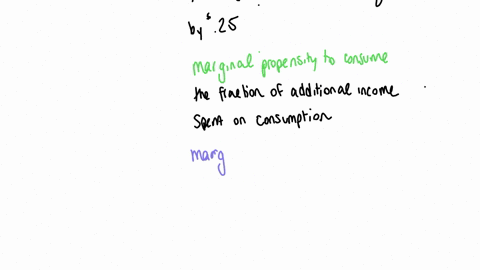 by $.25
marginal propensity to consume
the fraction of additional income
spent on consumption
marg